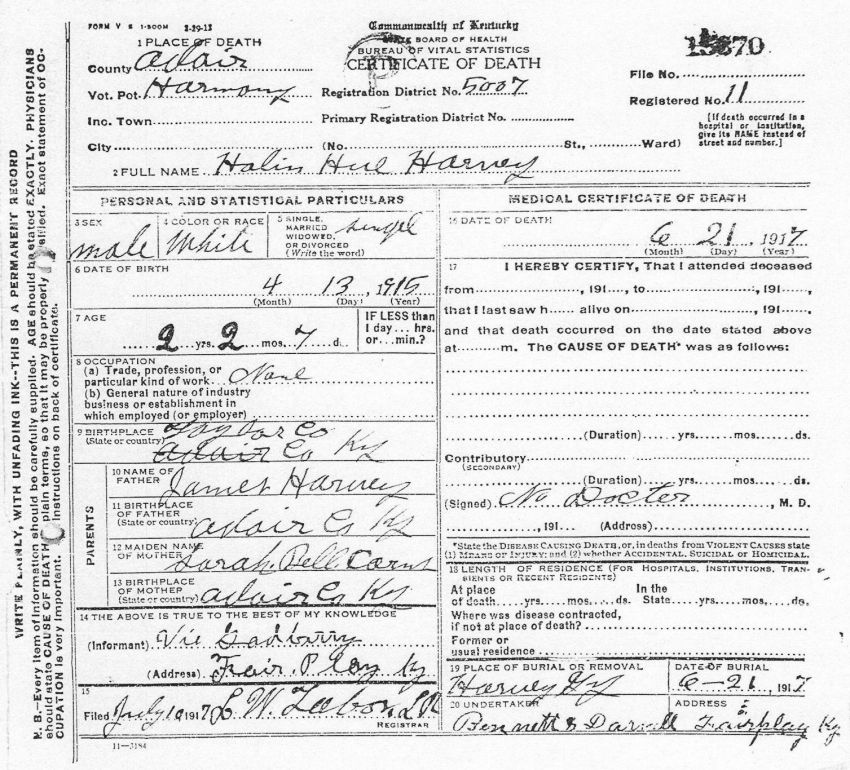 FORM V S 1-500M 3-29-12
Commonwealth of Kentucky
BOARD OF HEALTH
BUREAU OF VITAL STATISTICS
CERTIFICATE OF DEATH
1 PLACE OF DEATH
County Adair
Vot. Pct. Harmony
Inc. Town
City
Registration District No. 5007
Primary Registration District No.
(No. St., Ward)
File No.
Registered No. 11
[If death occurred in a
hospital or institution,
give its NAME instead of
street and number.]
2 FULL NAME Harvey
PERSONAL AND STATISTICAL PARTICULARS
3 SEX
male
4 COLOR OR RACE
White
5 SINGLE, MARRIED WIDOWED, OR DIVORCED (Write the word)
singel
6 DATE OF BIRTH
4 13, 1915
(Month) (Day) (Year)
7 AGE
2 yrs. 2 mos. 7 ds.
IF LESS than
1 day... hrs.
or... min.?
8 OCCUPATION
(a) Trade, profession, or
particular kind of work None
(b) General nature of industry
business or establishment in
which employed (or employer)
9 BIRTHPLACE
(State or country)
Taylor Co
Adair Co Ky
PARENTS
10 NAME OF FATHER
James Harvey
11 BIRTHPLACE OF FATHER (State or country)
Adair Co Ky
12 MAIDEN NAME OF MOTHER
Sarah Bell
13 BIRTHPLACE OF MOTHER (State or country)
Adair Co Ky
14 THE ABOVE IS TRUE TO THE BEST OF MY KNOWLEDGE
(Informant) Vic Gadberry
(Address) Fair Play Ky
15
Filed July 10 1917 L W Tabor L R
REGISTRAR
11-3184
MEDICAL CERTIFICATE OF DEATH
16 DATE OF DEATH
6 21, 1917
(Month) (Day) (Year)
17 I HEREBY CERTIFY, That I attended deceased
from , 191 , to , 191 ,
that I last saw h alive on , 191 ,
and that death occurred on the date stated above
at m. The CAUSE OF DEATH* was as follows:
(Duration) yrs. mos. ds.
Contributory
(SECONDARY)
(Duration) yrs. mos. ds.
(Signed) No Docter , M. D.
, 191 (Address)
*State the DISEASE CAUSING DEATH, or, in deaths from VIOLENT CAUSES state
(1) MEANS OF INJURY; and (2) whether ACCIDENTAL, SUICIDAL or HOMICIDAL.
18 LENGTH OF RESIDENCE (FOR HOSPITALS, INSTITUTIONS, TRAN-
SIENTS OR RECENT RESIDENTS)
At place In the
of death yrs. mos. ds. State yrs. mos. ds.
Where was disease contracted,
if not at place of death?
Former or
usual residence
19 PLACE OF BURIAL OR REMOVAL
Harvey
DATE OF BURIAL
6-21, 1917
20 UNDERTAKER
Bennett &
ADDRESS
Fairplay Ky
WRITE PLAINLY, WITH UNFADING INK--THIS IS A PERMANENT RECORD
N. B.—Every item of information should be carefully supplied. AGE should be stated EXACTLY. PHYSICIANS
should state CAUSE OF DEATH plain terms, so that it may be properly Exact statement of OC-
CUPATION is very important. instructions on back of certificate.